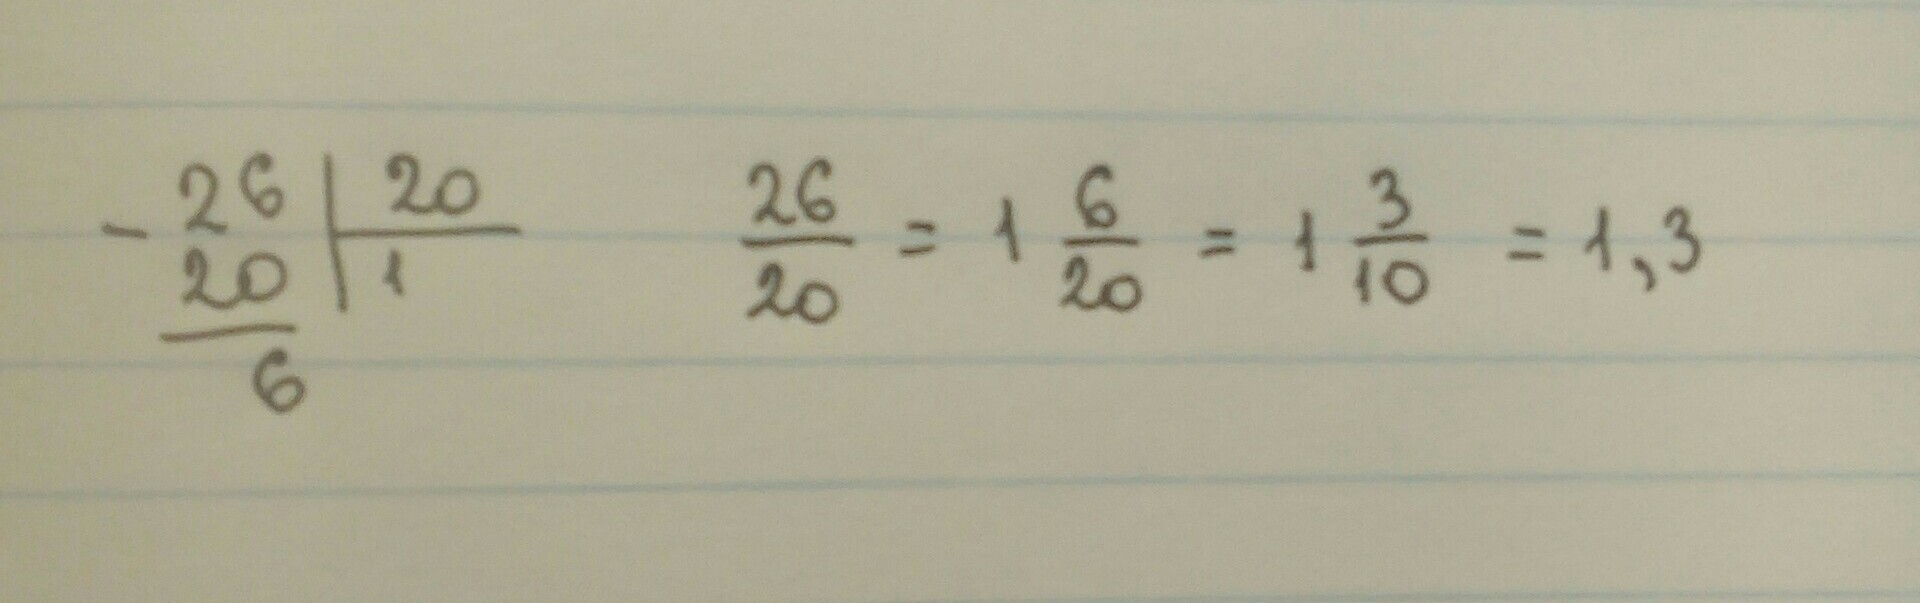 - 26 | 20
20 | 1
6
26/20 = 1 6/20 = 1 3/10 = 1,3